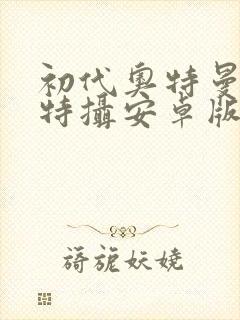 初代奥特曼
特攝安卓版
旖旎妖娆